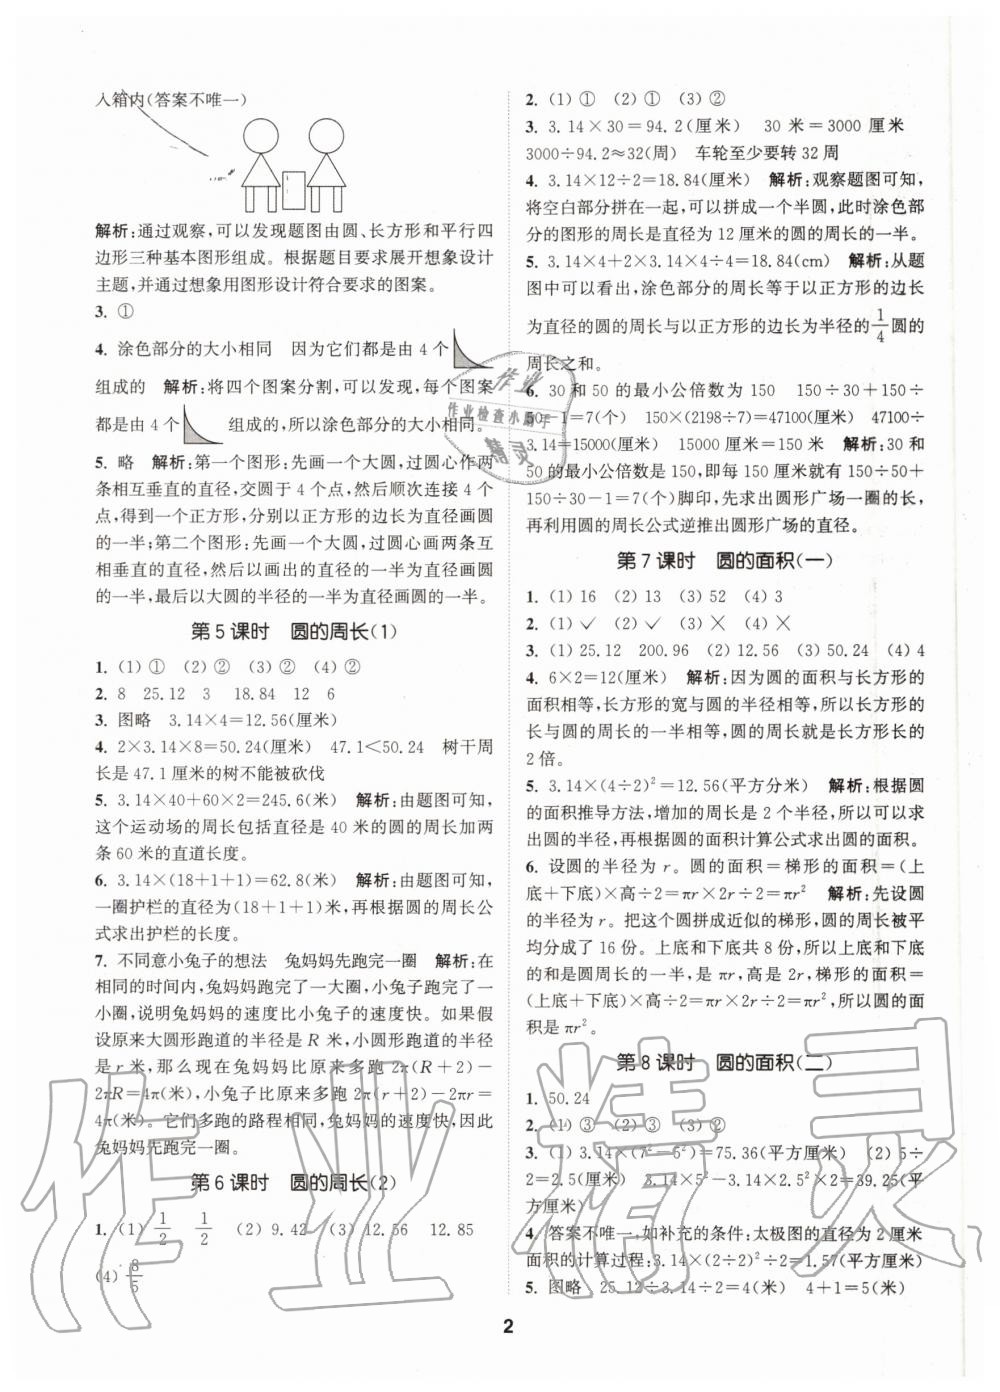 入箱内(答案不唯一)
解析:通过观察,可以发现题图由圆、长方形和平行四
边形三种基本图形组成。根据题目要求展开想象设计
主题,并通过想象用图形设计符合要求的图案。
3. ①
4. 涂色部分的大小相同　因为它们都是由 4 个
组成的　解析:将四个图案分割,可以发现,每个图案
都是由 4 个　组成的,所以涂色部分的大小相同。
5. 略　解析:第一个图形:先画一个大圆,过圆心作两
条相互垂直的直径,交圆于 4 个点,然后顺次连接 4 个
点,得到一个正方形,分别以正方形的边长为直径画圆
的一半;第二个图形:先画一个大圆,过圆心画两条互
相垂直的直径,然后以画出的直径的一半为直径画圆
的一半,最后以大圆的半径的一半为直径画圆的一半。
第 5 课时　圆的周长(1)
1. (1) ①　(2) ②　(3) ②　(4) ②
2. 8　25.12　3　18.84　12　6
3. 图略　3.14×4=12.56(厘米)
4. 2×3.14×8=50.24(厘米)　47.1<50.24　树干周
长是 47.1 厘米的树不能被砍伐
5. 3.14×40+60×2=245.6(米)　解析:由题图可知,
这个运动场的周长包括直径是 40 米的圆的周长加两
条 60 米的直道长度。
6. 3.14×(18+1+1)=62.8(米)　解析:由题图可知,
一圈护栏的直径为(18+1+1)米,再根据圆的周长公
式求出护栏的长度。
7. 不同意小兔子的想法　兔妈妈先跑完一圈　解析:在
相同的时间内,兔妈妈跑完了一大圈,小兔子跑完了一
小圈,说明兔妈妈的速度比小兔子的速度快。如果假
设原来大圆形跑道的半径是 R 米,小圆形跑道的半径
是 r 米,那么现在兔妈妈比原来多跑 2π(R+2)-
2πR=4π(米),小兔子比原来多跑 2π(r+2)-2πr=
4π(米)。它们多跑的路程相同,兔妈妈的速度快,因此
兔妈妈先跑完一圈。
第 6 课时　圆的周长(2)
1. (1) 1/2　1/2　(2) 9.42　(3) 12.56　12.85
(4) 8/5
2. (1) ①　(2) ①　(3) ②
3. 3.14×30=94.2(厘米)　30 米=3000 厘米
3000÷94.2≈32(周)　车轮至少要转 32 周
4. 3.14×12÷2=18.84(厘米)　解析:观察题图可知,
将空白部分拼在一起,可以拼成一个半圆,此时涂色部
分的图形的周长是直径为 12 厘米的圆的周长的一半。
5. 3.14×4+2×3.14×4÷4=18.84(cm)　解析:从题
图中可以看出,涂色部分的周长等于以正方形的边长
为直径的圆的周长与以正方形的边长为半径的1/4圆的
周长之和。
6. 30 和 50 的最小公倍数为 150　150÷30+150÷
50-1=7(个)　150×(2198÷7)=47100(厘米)　47100÷
3.14=15000(厘米)　15000 厘米=150 米　解析:30 和
50 的最小公倍数是 150,即每 150 厘米就有 150÷50+
150÷30-1=7(个)脚印,先求出圆形广场一圈的长,
再利用圆的周长公式逆推出圆形广场的直径。
第 7 课时　圆的面积(一)
1. (1) 16　(2) 13　(3) 52　(4) 3
2. (1) ✓　(2) ✓　(3) ✕　(4) ✕
3. (1) 25.12　200.96　(2) 12.56　(3) 50.24　(4) 4
4. 6×2=12(厘米)　解析:因为圆的面积与长方形的
面积相等,长方形的宽与圆的半径相等,所以长方形的
长与圆的周长的一半相等,圆的周长就是长方形长的
2 倍。
5. 3.14×(4÷2)²=12.56(平方分米)　解析:根据圆
的面积推导方法,增加的周长是 2 个半径,所以可以求
出圆的半径,再根据圆的面积计算公式求出圆的面积。
6. 设圆的半径为 r。圆的面积=梯形的面积=(上
底+下底)×高÷2=πr×2r÷2=πr²　解析:先设圆
的半径为 r。把这个圆拼成近似的梯形,圆的周长被平
均分成了 16 份。上底和下底共 8 份,所以上底和下底
的和是圆的周长的一半,是 πr,高是 2r,梯形的面积=
(上底+下底)×高÷2=πr×2r÷2=πr²,所以圆的面
积是 πr²。
第 8 课时　圆的面积(二)
1. 50.24
2. (1) ③　(2) ③　(3) ②
3. (1) 3.14×(7²-5²)=75.36(平方厘米)　(2) 5÷
2=2.5(厘米)　3.14×5²-3.14×2.5²×2=39.25(平
方厘米)
4. 答案不唯一,如补充的条件:太极图的直径为 2 厘米
面积的计算过程:3.14×(2÷2)²÷2=1.57(平方厘米)
5. 图略　25.12÷3.14÷2=4(米)　4+1=5(米)
2
作业
作业检查小助手
精灵
作业精灵